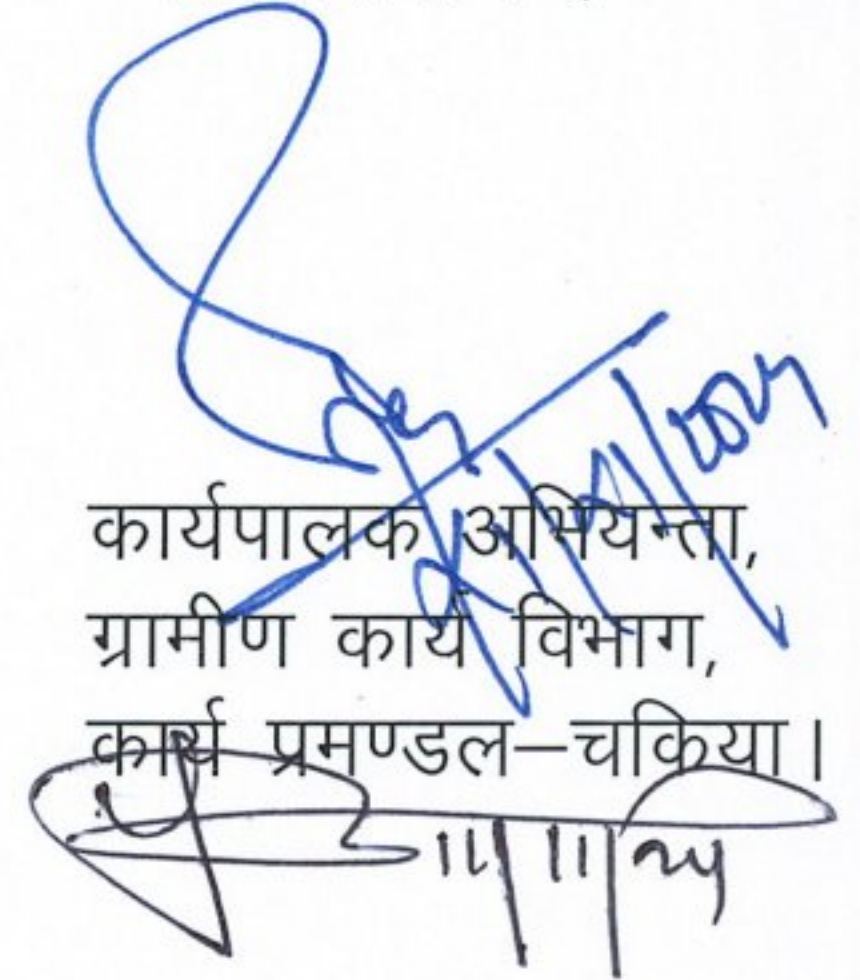 कार्यपालक अभियन्ता,
ग्रामीण कार्य विभाग,
कार्य प्रमण्डल–चकिया।
11/11/24